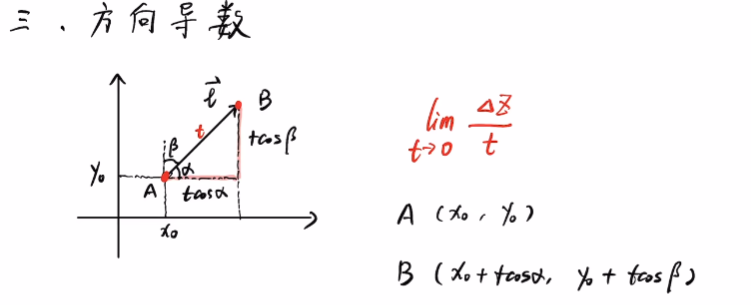 三、方向导数
l⃗
B
t
β
tcosβ
α
y₀
A
tcosα
x₀
lim ΔZ/t
t→0
A (x₀, y₀)
B (x₀+tcosα, y₀+tcosβ)